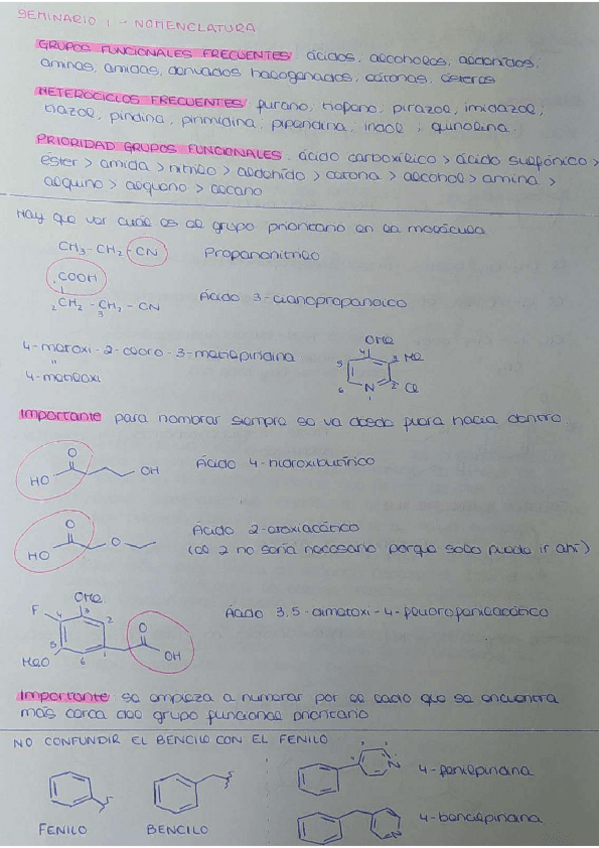 SEMINARIO 1 - NOMENCLATURA
GRUPOS FUNCIONALES FRECUENTES: ácidos, alcoholes, aldehídos,
aminas, amidas, derivados halogenados, cetonas, ésteres
HETEROCICLOS FRECUENTES: furano, tiofeno, pirazol, imidazol,
tiazol, piridina, pirimidina, piperidina, indol, quinolina.
PRIORIDAD GRUPOS FUNCIONALES: ácido carboxílico > ácido sulfónico >
éster > amida > nitrilo > aldehído > cetona > alcohol > amina >
alquino > alqueno > alcano
Hay que ver cuál es el grupo prioritario en la molécula
CH3 - CH2 - CN Propanonitrilo
COOH
2CH2 - CH2 - CN Ácido 3-cianopropanoico
3
4-metoxi-2-cloro-3-metilpiridina
"
4-metiloxi
OMe
4
5 3 Me
6 N 2 Cl
1
Importante para nombrar siempre se va desde fuera hacia dentro.
O
HO OH Ácido 4-hidroxibutírico
O
HO O Ácido 2-etoxiacético
(el 2 no sería necesario porque solo puede ir ahí)
OMe
F 4 3 2 O
5 6 1 OH
MeO
Ácido 3,5-dimetoxi-4-fluorofenilacético
Importante se empieza a numerar por el lado que se encuentra
más cerca del grupo funcional prioritario
NO CONFUNDIR EL BENCILO CON EL FENILO
N 4-fenilpiridina
N 4-bencilpiridina
FENILO BENCILO